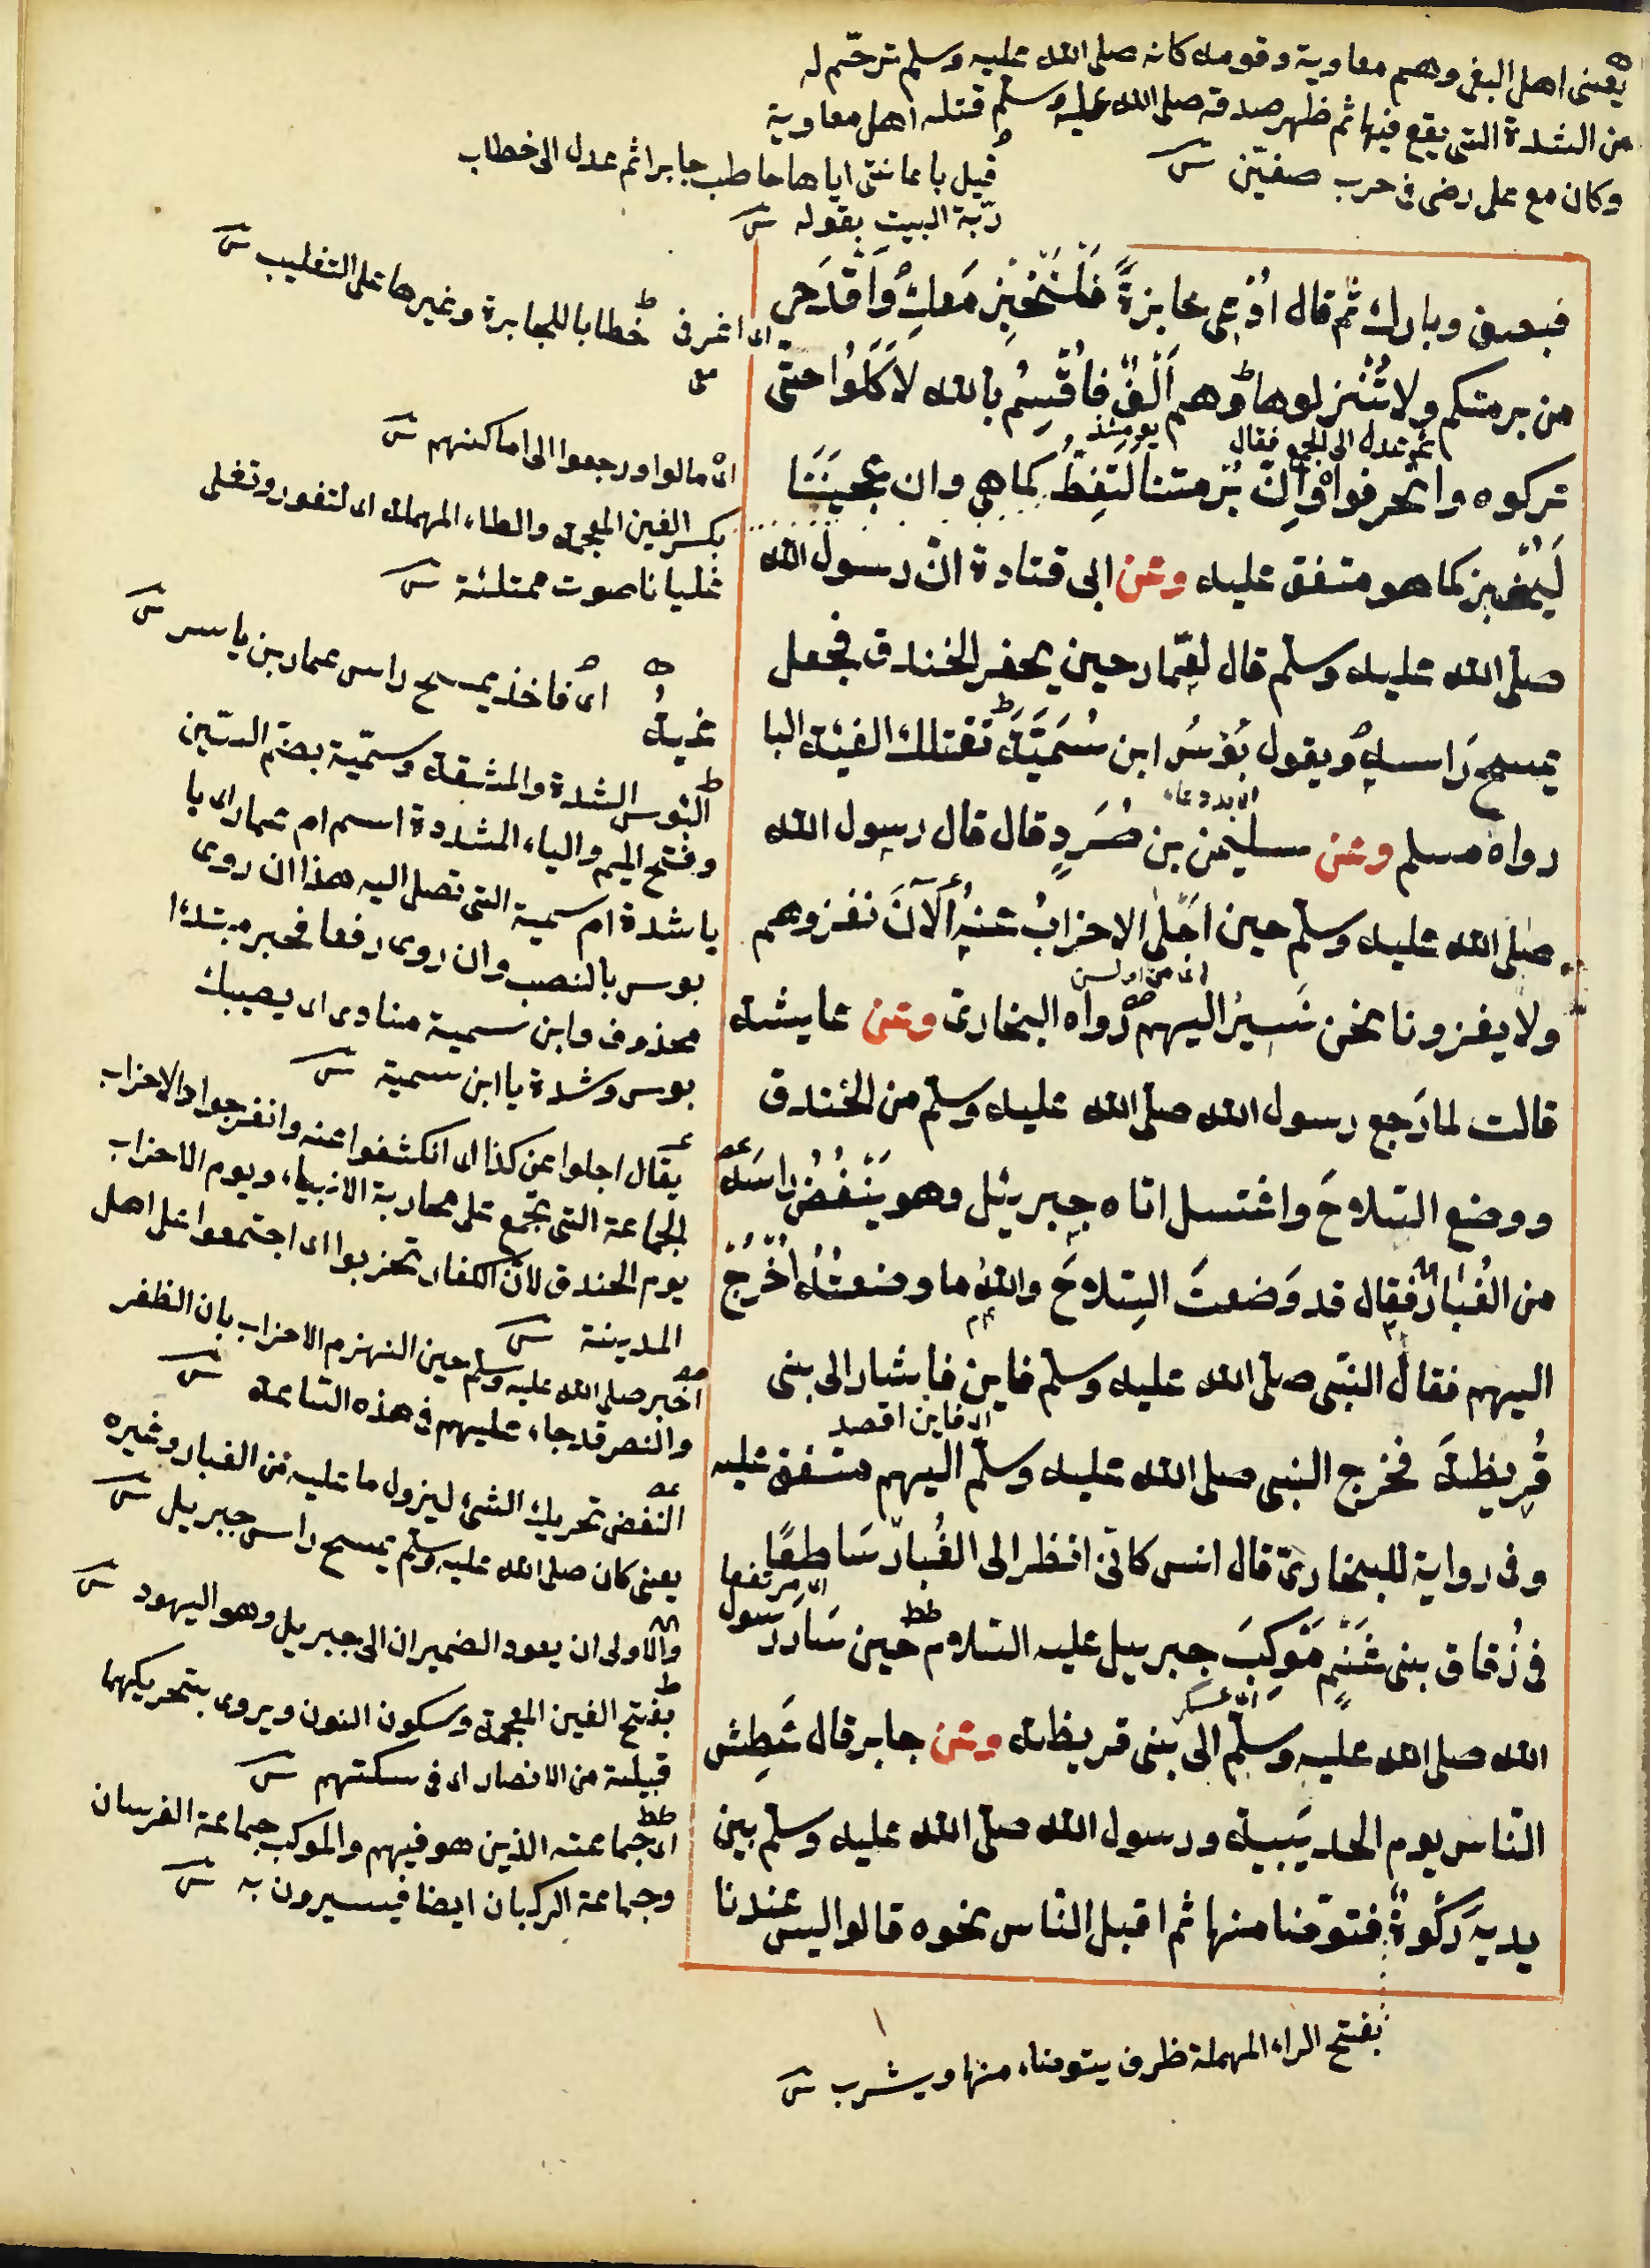 يعنى اهل البغى وهم معاوية وقومه كانه صلى الله عليه وسلم ترحّم له
من الشدة التى يقع فيها ثم ظهر صدقه صلى الله عليه وسلم قتله اهل معاوية
وكان مع على رضى فى حرب صفين
قيل باعانتى اياها خاطب جابرا ثم عدل الى خطاب
ربّة البيت بقوله
فبصق وبارك ثم قال ادْعِى خابزةً فَلْتَخْبِز مَعَكِ وَاقْدَحِى
من برمتكم ولا تُنْزلوها وهم اَلْفٌ فاُقْسِمُ بالله لَاَكَلُوا حتى
ثم عدل الى الجمع فقال
يومئذ
تركوه وانحرفوا وَاِنَّ بُرمتنا لَتَغِطُّ كما هي وان عجينَنَا
لَيُخْبز كما هو متفق عليه وعن ابى قتادة انّ رسول الله
صلى الله عليه وسلم قال لعَمّار حين يحفر الخندق فجعل
يمسح رَاسه ويقول بُؤسُ ابن سُمَيَّةَ تقتلك الفئة البا
رواه مسلم وعن سليمن بن صُرَدٍ قال قال رسول الله
صلى الله عليه وسلم حين اَجْلَى الاحزابُ عنه اَلْآنَ نغزوهم
ولا يغزونا نحن نَسيرُ اليهم رواه البخارى وعن عايشة
قالت لما رَجع رسول الله صلى الله عليه وسلم من الخندق
ووضع السّلاحَ واغتسل اتاه جبرئيل وهو يَنْفُضُ راسَه
من الغُبار فقال قد وَضعتَ السِلاحَ واللهِ ما وضعتُهُ اُخْرُجْ
اليهم فقال النّبى صلى الله عليه وسلم فاين فاشار الى بنى
اى فاين اقصد
قُريظةَ فخرج النبى صلى الله عليه وسلم اليهم متفق عليه
وفى رواية للبخارىّ قال انس كانّى انظر الى الغُبار سَاطِعًا
اى مرتفعا
فى زُقاق بنى غَنْمٍ مَوْكِبَ جبريل عليه السّلام حين سَارَ رَسول
اى عسكر
الله صلى الله عليه وسلم الى بنى قريظة وعن جابر قال عَطِشَ
النّاس يوم الحديبية ورسول الله صلى الله عليه وسلم بين
يديه رَكْوةٌ فتوضا منها ثم اقبل النّاس نحوه قالوا ليس عندنا
اى اغرفى خطابا للجابرة وغيرها على التغليب
اى مالوا ورجعوا الى اماكنهم
بكسر الغين المعجمة والطاء المهملة اى لتفور وتغلى
غليانا صوت ممتلئة
اى فاخذ يمسح راس عمار بن ياسر
غية
البؤس الشدة والمشقة وسميّة بضم السّين
وفتح الميم والياء المشددة اسم ام عمار اى يا
يا شدة ام سمية التى تصل اليه هذا ان روى
بوس بالنصب وان روى رفعا فخبر مبتدا
محذوف وابن سمية منادى اى يصيبك
بوس وشدة يا ابن سمية
يقال اجلوا عن كذا اى انكشفوا عنه وانفرجوا والاحزاب
الجماعة التى تجمع على محاربة الانبياء ويوم الاحزاب
يوم الخندق لانّ الكفار تحزبوا اى اجتمعوا على اهل
المدينة
اخبر صلى الله عليه وسلم حين انهزم الاحزاب بان الظفر
والنصر قد جاء عليهم فى هذه السّاعة
النفض تحريك الشئ ليزول ما عليه من الغبار وغيره
يعنى كان صلى الله عليه وسلم يمسح راس جبريل
والاولى ان يعود الضميران الى جبريل وهو اليهود
بفتح الغين المعجمة وسكون النون ويروى بتحريكهما
قبيلة من الانصار اى فى سكتهم
اى جماعته الذين هو فيهم والموكب جماعة الفرسان
وجماعة الركبان ايضا فيسيرون به
بفتح الراء المهملة ظرف يتوضاء منها ويشرب